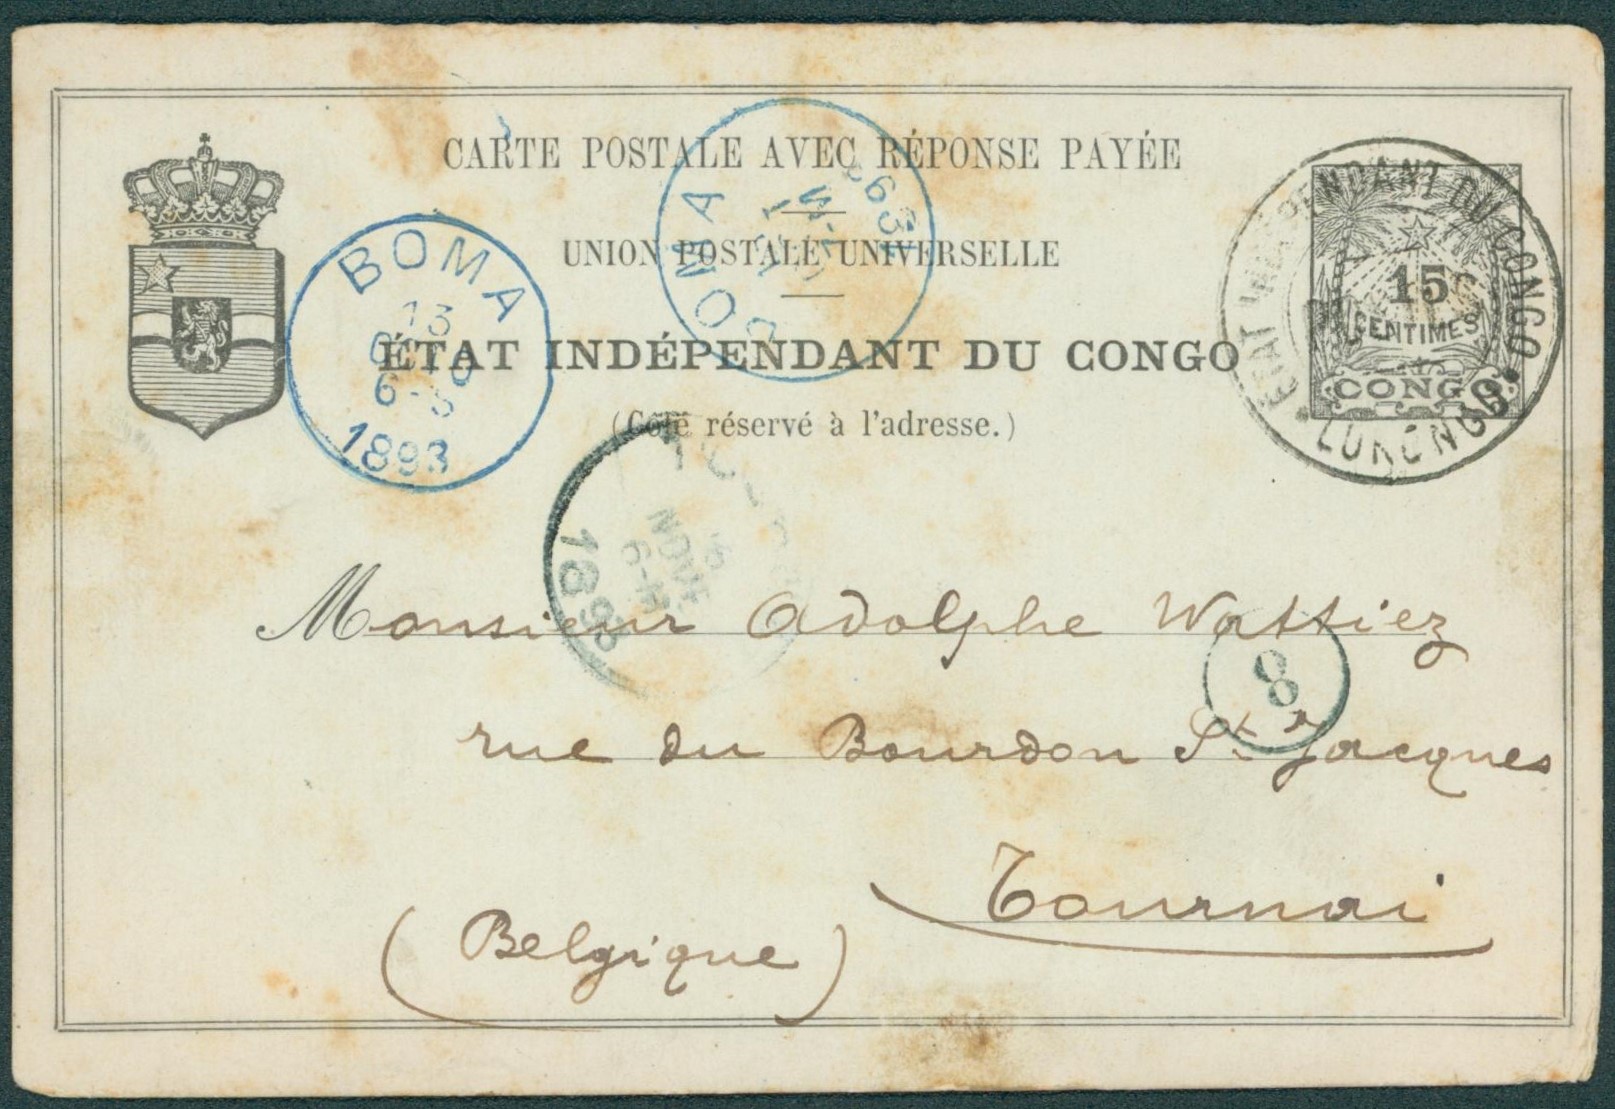 CARTE POSTALE AVEC RÉPONSE PAYÉE
UNION POSTALE UNIVERSELLE
ÉTAT INDÉPENDANT DU CONGO
(Côté réservé à l'adresse.)
15
CENTIMES
CONGO
ÉTAT INDÉPENDANT DU CONGO
LUKUNGU
BOMA
13
6-S
1893
BOMA
1893
1893
8
Monsieur Adolphe Wattiez
rue du Bourdon St Jacques
Tournai
(Belgique)